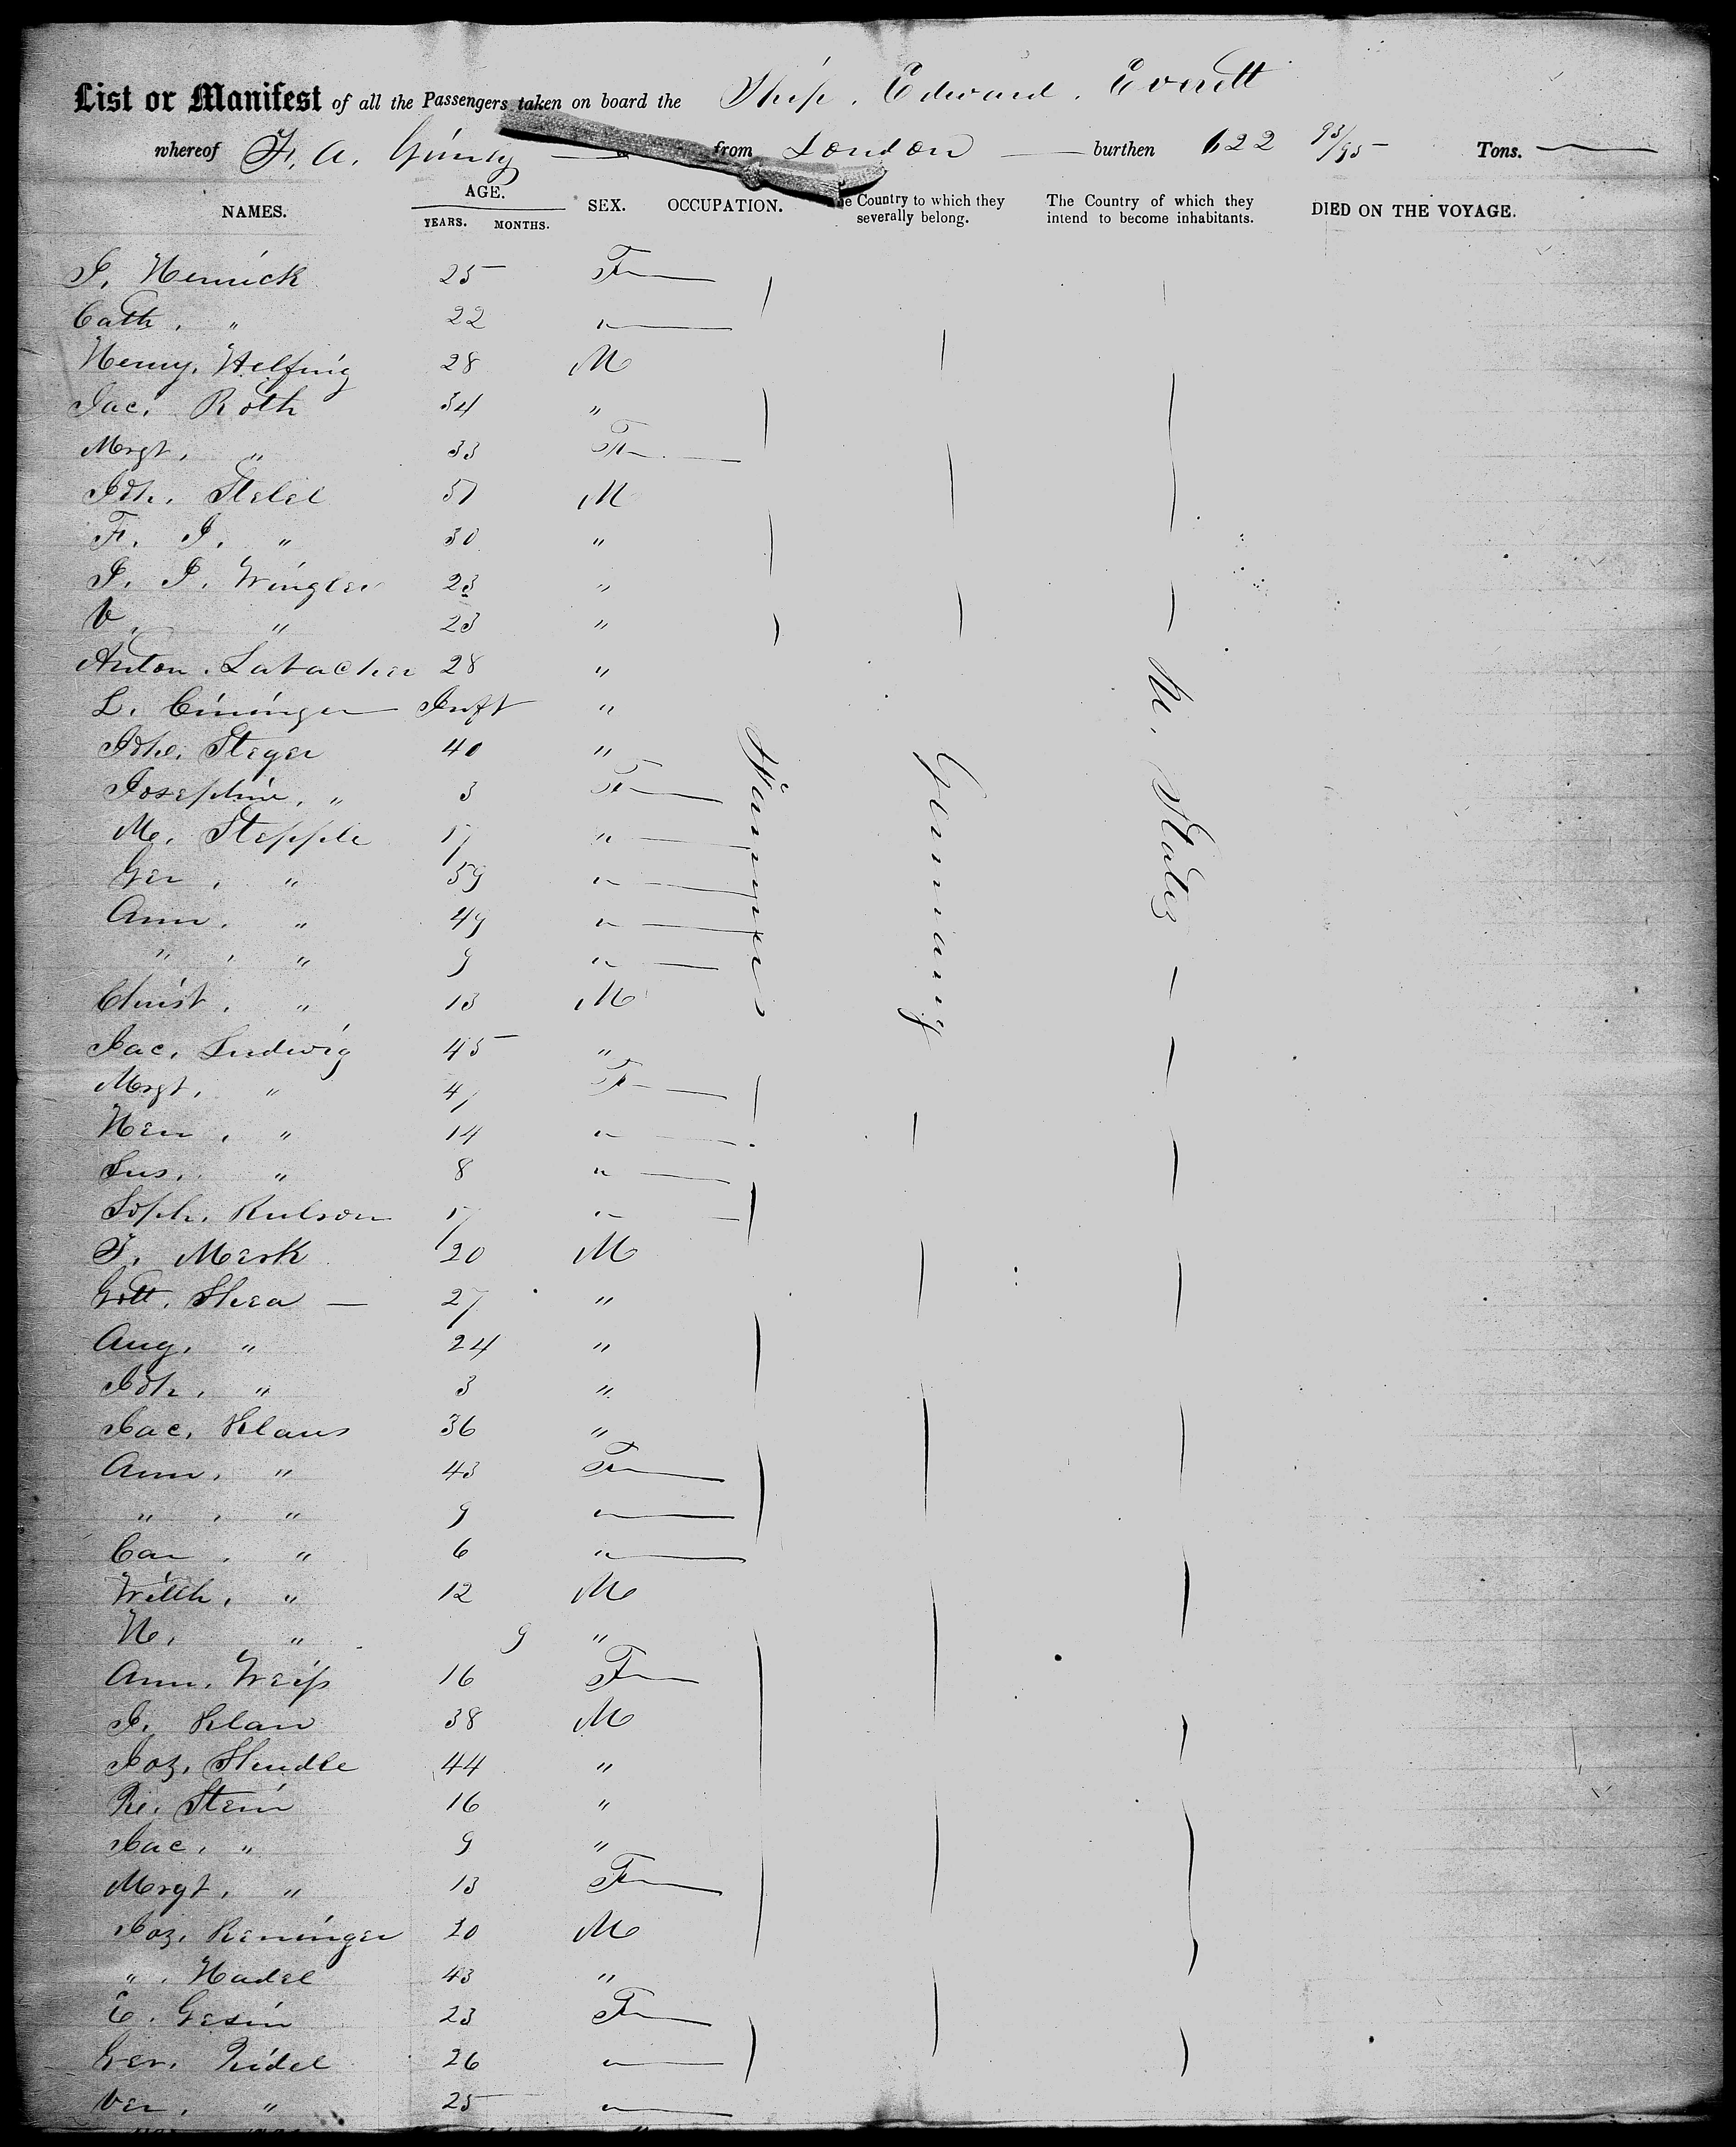 List or Manifest of all the Passengers taken on board the Ship. Edward. Everett
whereof F. A. from London burthen 622 93/95 Tons.
NAMES. AGE. YEARS. MONTHS. SEX. OCCUPATION. Country to which they severally belong. The Country of which they intend to become inhabitants. DIED ON THE VOYAGE.
25 F
Cath. " 22 "
Henry. Helfing 28 M
Jac. Roth 34 "
Mrgt. " 33 F
Joh. 51 M
F. J. " 30 "
J. J. Wingler 23 "
V. " 23 "
Anton. 28 "
L. Inft "
Joh. Steger 40 "
Josephine. " 3 F
M. Stepple 17 "
Ger. " 59 "
Ann. " 49 "
" . " 9 "
Christ. " 13 M
Jac. Ludwig 45 "
Mrgt. " 47 F
Hen. " 14 "
Sus. " 8 "
Soph. 17 "
Merk 20 M
Gott. Shea 27 "
Aug. " 24 "
Joh. " 3 "
Jac. Klaus 36 "
Ann. " 43 F
" . " 9 "
Car. " 6 "
Willh. " 12 M
" 9 "
Ann. Weiss 16 F
J. Klaw 38 M
Joz. 44 "
Stein 16 "
Jac. " 9 "
Mrgt. " 13 F
Joz. Reninger 20 M
" . Hadel 43 "
E. Gesin 23 F
Ger. 26 "
Ver. " 25 "
Farmers
Germany
U. States